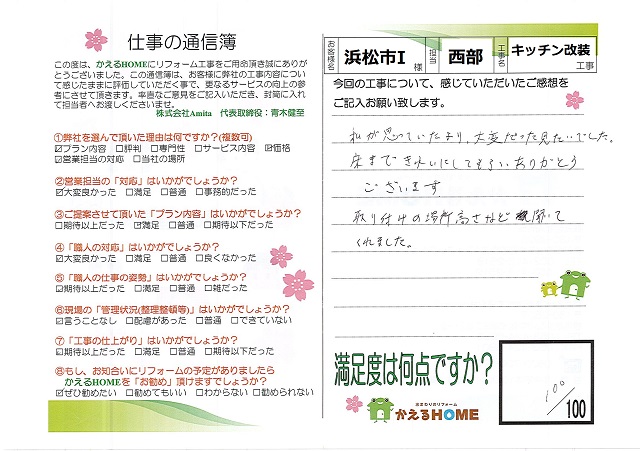 仕事の通信簿
この度は、かえるHOMEにリフォーム工事をご用命頂き誠にありが
とうございました。この通信簿は、お客様に弊社の工事内容につい
て感じたままに評価していただく事で、更なるサービスの向上の参
考にさせて頂きます。率直なご意見をご記入いただき、封筒に入れ
て担当者へお渡しくださいませ。
株式会社Amita 代表取締役：青木健至
①弊社を選んで頂いた理由は何ですか？(複数可)
☑プラン内容 □評判 □専門性 □サービス内容 ☑価格
☑営業担当の対応 □当社の場所
②営業担当の「対応」はいかがでしょうか？
☑大変良かった □満足 □普通 □事務的だった
③ご提案させて頂いた「プラン内容」はいかがでしょうか？
□期待以上だった ☑満足 □普通 □期待以下だった
④「職人の対応」はいかがでしょうか？
☑大変良かった □満足 □普通 □良くなかった
⑤「職人の仕事の姿勢」はいかがでしょうか？
☑期待以上だった □満足 □普通 □雑だった
⑥現場の「管理状況(整理整頓等)」はいかがでしょうか？
☑言うことなし □配慮があった □普通 □できていない
⑦「工事の仕上がり」はいかがでしょうか？
☑期待以上だった □満足 □普通 □期待以下だった
⑧もし、お知合いにリフォームの予定がありましたら
かえるHOMEを「お勧め」頂けますでしょうか？
☑ぜひ勧めたい □勧めてもいい □わからない □勧められない
お客様名 浜松市I 様 担当 西部 工事名 キッチン改装 工事
今回の工事について、感じていただいたご感想を
ご記入お願い致します。
私が思っていたより、大変だった見たいでした。
床まできれいにしてもらいありがとう
ございます
取り付けの場所高さなど 聞いて
くれました。
満足度は何点ですか？
100/100
水まわりのリフォーム
かえるHOME